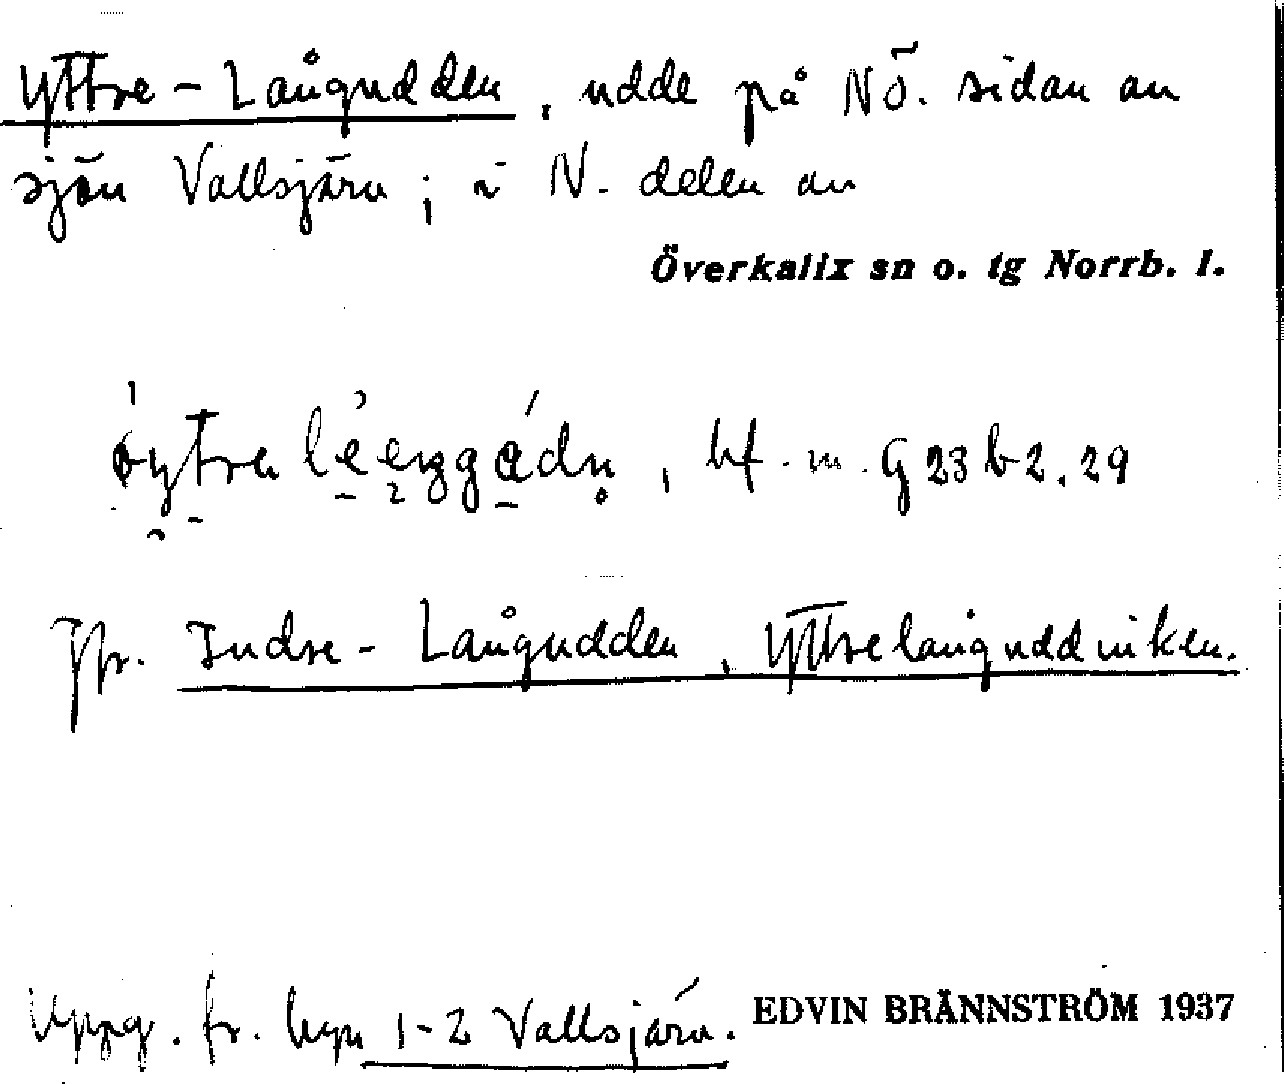 Yttre-Långudden, udde på NÖ. sidan av
sjön Vallsjärv; i N. delen av
Överkalix sn o. tg Norrb. l.
bf. m. G 23 b 2. 29
Jfr. Indre-Långudden, Yttrelånguddviken.
Uppg. fr. byn 1-2 Vallsjärv. EDVIN BRÄNNSTRÖM 1937